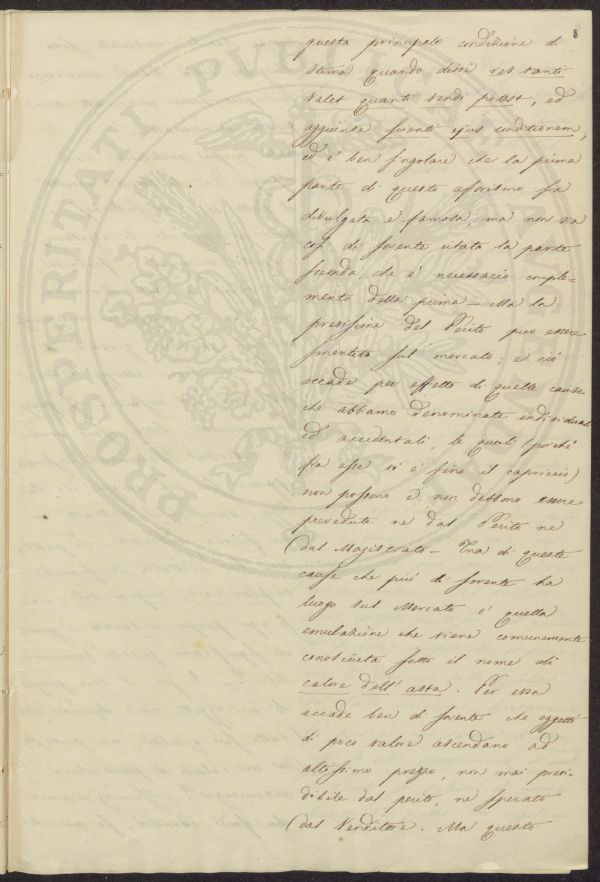 8
questa principale condizione di
stima quando dissi res tanti
valet quanti vendi potest, ed
aggiunse scienti ejus conditionem,
ed é ben singolare che la prima
parte di questo aforismo sia
divulgata e famosa, ma non va
cosi di sovente citata la parte
seconda, che é necessario comple-
mento della prima — Ma la
previsione del Perito puo essere
smentita sul mercato; e ció
accade per effetto di quelle cause
che abbiamo denominate individuali
ed accidentali, le quali (perché
fra esse vi é fino il capriccio)
non possono e non debbono essere
prevedute ne dal Perito ne
dal Magistrato — Una di queste
cause che piú di sovente ha
luogo sul Mercato é quella
emulazione che viene comunemente
conosciuta sotto il nome di
calore dell' asta. Per essa
accade ben di sovente che oggetti
di poco valore ascendano ad
altissimo prezzo, non mai prevе-
dibile dal perito, ne sperato
dal Venditore. Ma questo
PROSPERITATI PVBLICAE